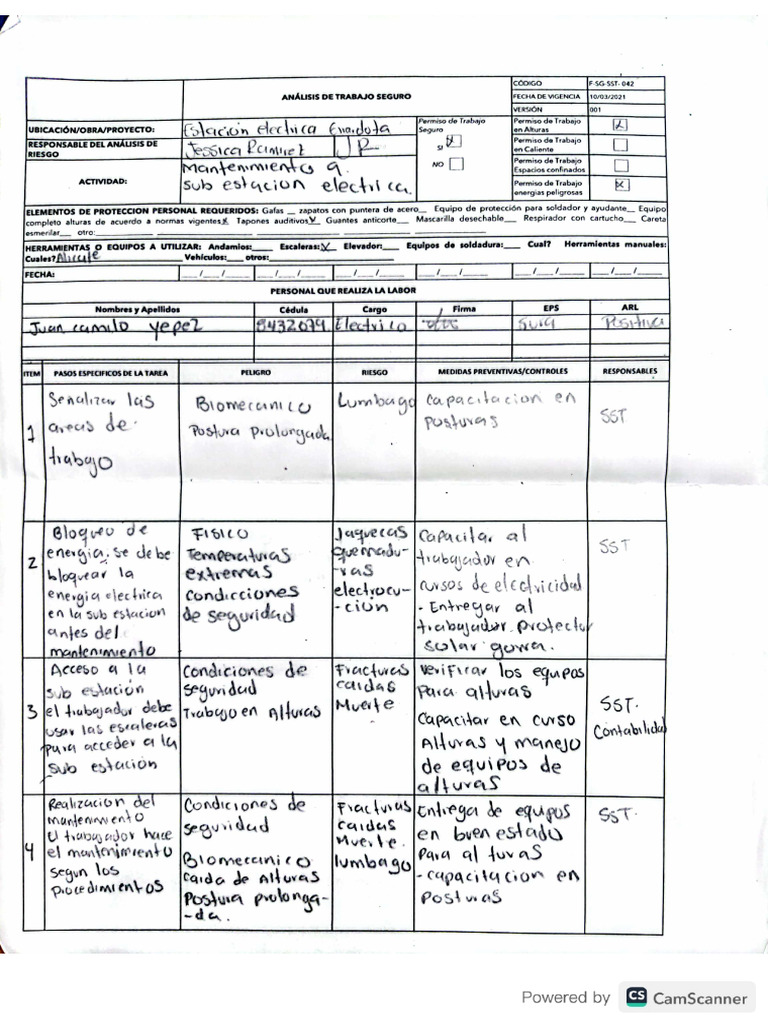 ANÁLISIS DE TRABAJO SEGURO
CÓDIGO F-SG-SST- 042
FECHA DE VIGENCIA 10/03/2021
VERSIÓN 001
UBICACIÓN/OBRA/PROYECTO: Estación electrica Girardota
RESPONSABLE DEL ANÁLISIS DE RIESGO Jessica Ramirez JR
ACTIVIDAD: Mantenimiento a
sub estacion electrica.
Permiso de Trabajo
Seguro
SI X
NO
Permiso de Trabajo
en Alturas X
Permiso de Trabajo
en Caliente
Permiso de Trabajo
Espacios confinados
Permiso de Trabajo
energias peligrosas X
ELEMENTOS DE PROTECCION PERSONAL REQUERIDOS: Gafas __ zapatos con puntera de acero__ Equipo de protección para soldador y ayudante__ Equipo
completo alturas de acuerdo a normas vigentes x Tapones auditivos v Guantes anticorte__ Mascarilla desechable__ Respirador con cartucho__ Careta
esmerilar__ otro:
HERRAMIENTAS O EQUIPOS A UTILIZAR: Andamios:____ Escaleras: X Elevador:____ Equipos de soldadura:____ Cual? Herramientas manuales:
Cuales? Alicate Vehículos:___ otros:
FECHA: __/__/__ __/__/__ __/__/__ __/__/__ __/__/__ __/__/__ __/__/__
PERSONAL QUE REALIZA LA LABOR
Nombres y Apellidos Cédula Cargo Firma EPS ARL
Juan camilo yepez 9432079 Electrico Sura Positiva
ITEM PASOS ESPECIFICOS DE LA TAREA PELIGRO RIESGO MEDIDAS PREVENTIVAS/CONTROLES RESPONSABLES
1
Señalizar las
areas de
trabajo
Biomecanico
Postura prolongada
Lumbago
Capacitacion en
posturas
SST
2
Bloqueo de
energia, se debe
bloquear la
energia electrica
en la sub estacion
antes del
mantenimiento
Fisico
Temperaturas
extremas
condicciones
de seguridad
Jaquecas
quemadu-
-ras
electrocu-
-cion
Capacitar al
trabajador en
cursos de electricidad
- Entregar al
trabajador. protector
solar gorra.
SST
3
Acceso a la
sub estación
el trabajador debe
usar las escaleras
para acceder a la
sub estación
Condiciones de
seguridad
Trabajo en Alturas
Fracturas
caidas
Muerte
Verificar los equipos
Para alturas
Capacitar en curso
Alturas y manejo
de equipos de
alturas
SST.
Contabilidad
4
Realizacion del
mantenimiento
el mantenimiento
segun los
procedimientos
Condiciones de
seguridad
Biomecanico
caida de Alturas
Postura prolonga-
-da.
Fracturas
caidas
Muerte.
lumbago
Entrega de equipos
en buen estado
Para alturas
- capacitacion en
Posturas
SST.
Powered by CS CamScanner